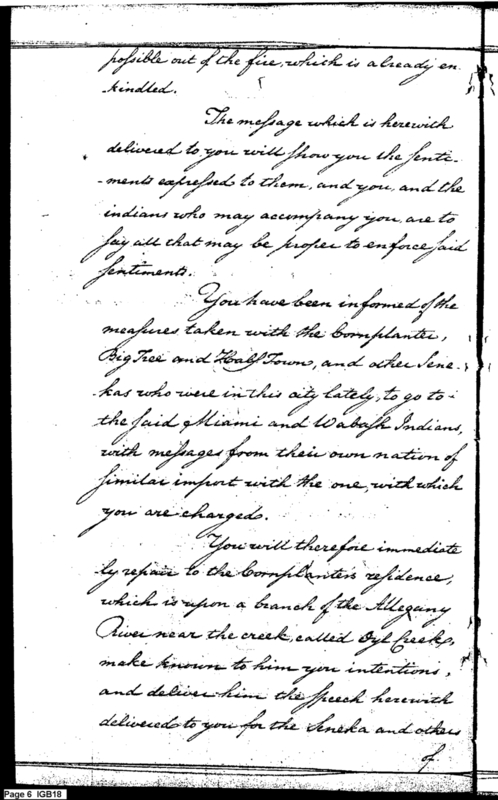 possible out of the fire, which is already en-
-kindled.
The message which is herewith
delivered to you will show you the senti-
-ments expressed to them, and you, and the
indians who may accompany you, are to
say all that may be proper to enforce said
sentiments.
You have been informed of the
measures taken with the Cornplanter,
Big Tree and Half Town, and other Sene-
kas who were in this city lately, to go to
the said Miami and Wabash Indians,
with messages from their own nation of
similar import with the one, with which
you are charged.
You will therefore immediate
ly repair to the Cornplanters residence,
which is upon a branch of the Allegany
River near the creek, called Oyl Creek,
make known to him you intentions,
and deliver him the speech herewith
delivered to you for the Seneka and others
of
Page 6 IGB18